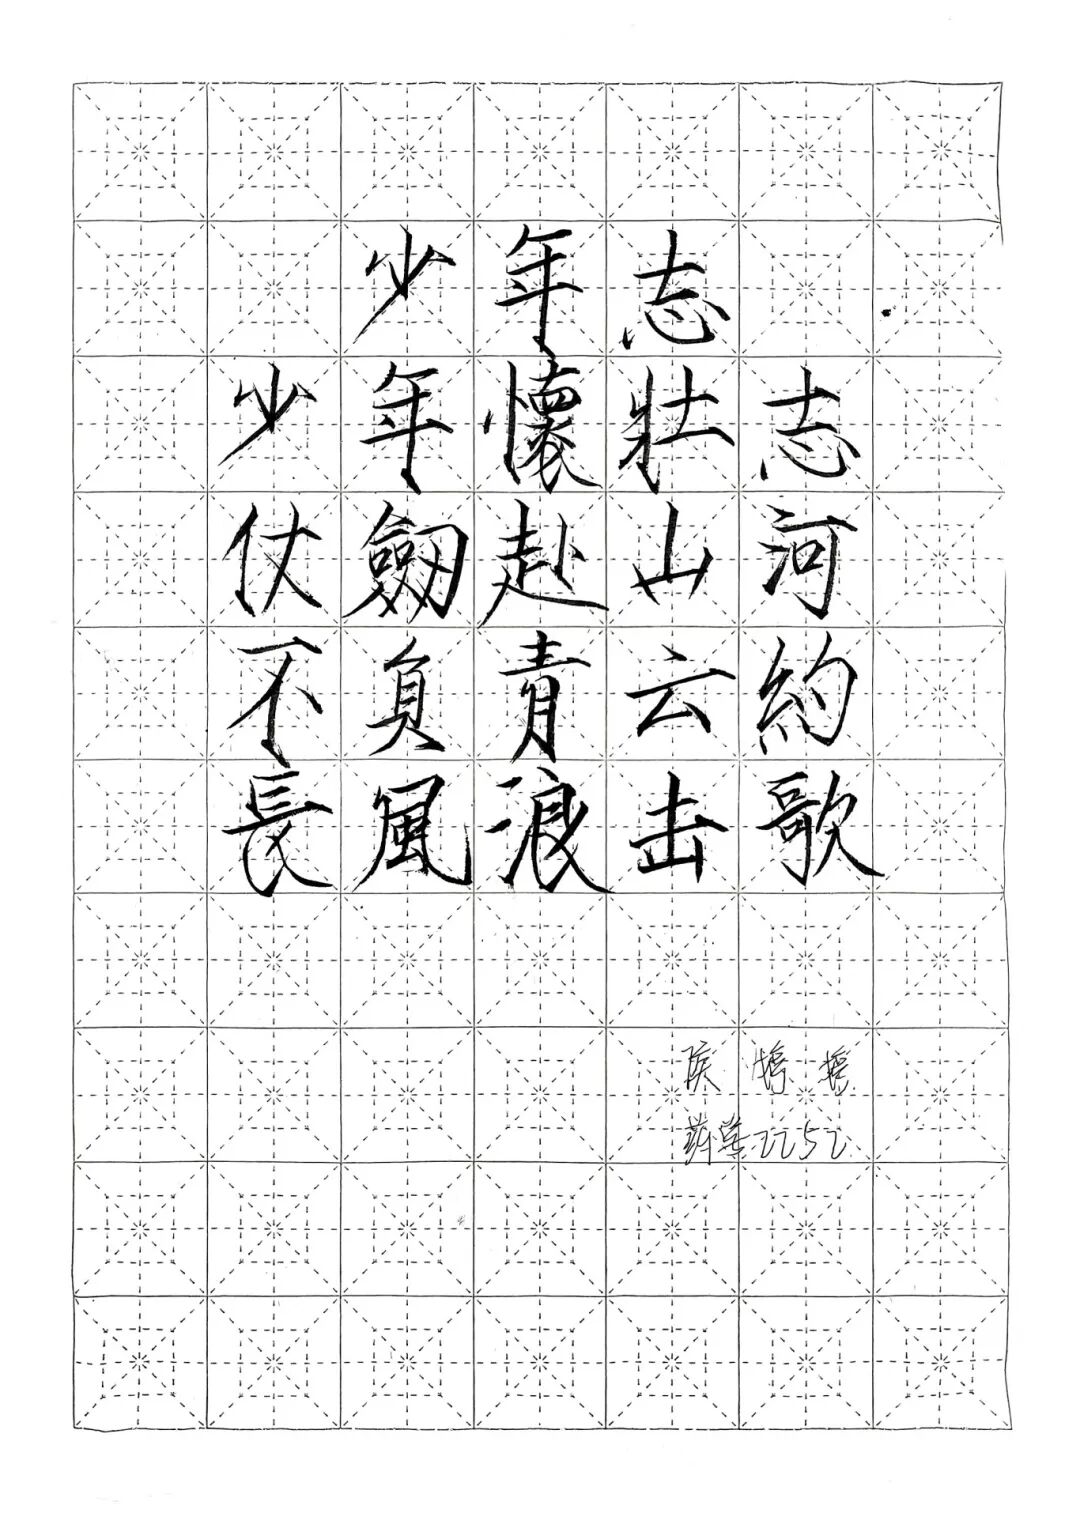 少年志
少年懷壯志
仗劒赴山河
不負青云約
長風浪击歌
药学2252